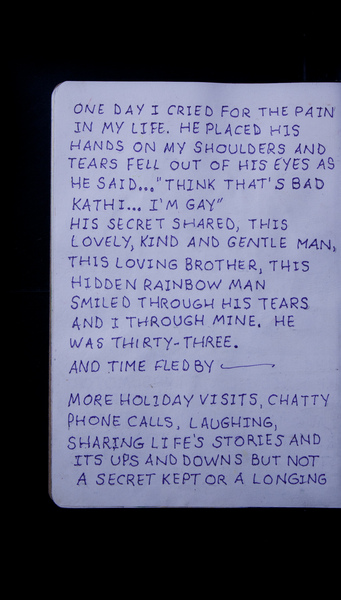 ONE DAY I CRIED FOR THE PAIN
IN MY LIFE. HE PLACED HIS
HANDS ON MY SHOULDERS AND
TEARS FELL OUT OF HIS EYES AS
HE SAID..."THINK THAT'S BAD
KATHI... I'M GAY"
HIS SECRET SHARED, THIS
LOVELY, KIND AND GENTLE MAN,
THIS LOVING BROTHER, THIS
HIDDEN RAINBOW MAN
SMILED THROUGH HIS TEARS
AND I THROUGH MINE. HE
WAS THIRTY-THREE.
AND TIME FLED BY
MORE HOLIDAY VISITS, CHATTY
PHONE CALLS, LAUGHING,
SHARING LIFE'S STORIES AND
ITS UPS AND DOWNS BUT NOT
A SECRET KEPT OR A LONGING